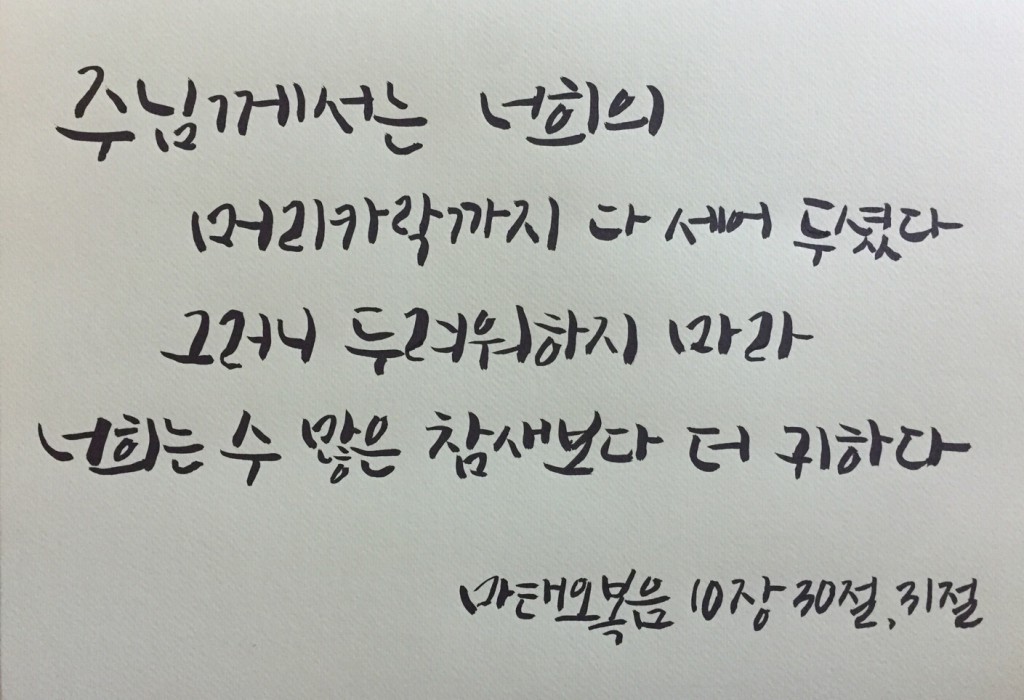 주님께서는 너희의
머리카락까지 다 세어 두셨다
그러니 두려워하지 마라
너희는 수 많은 참새보다 더 귀하다
마태오복음 10장 30절, 31절